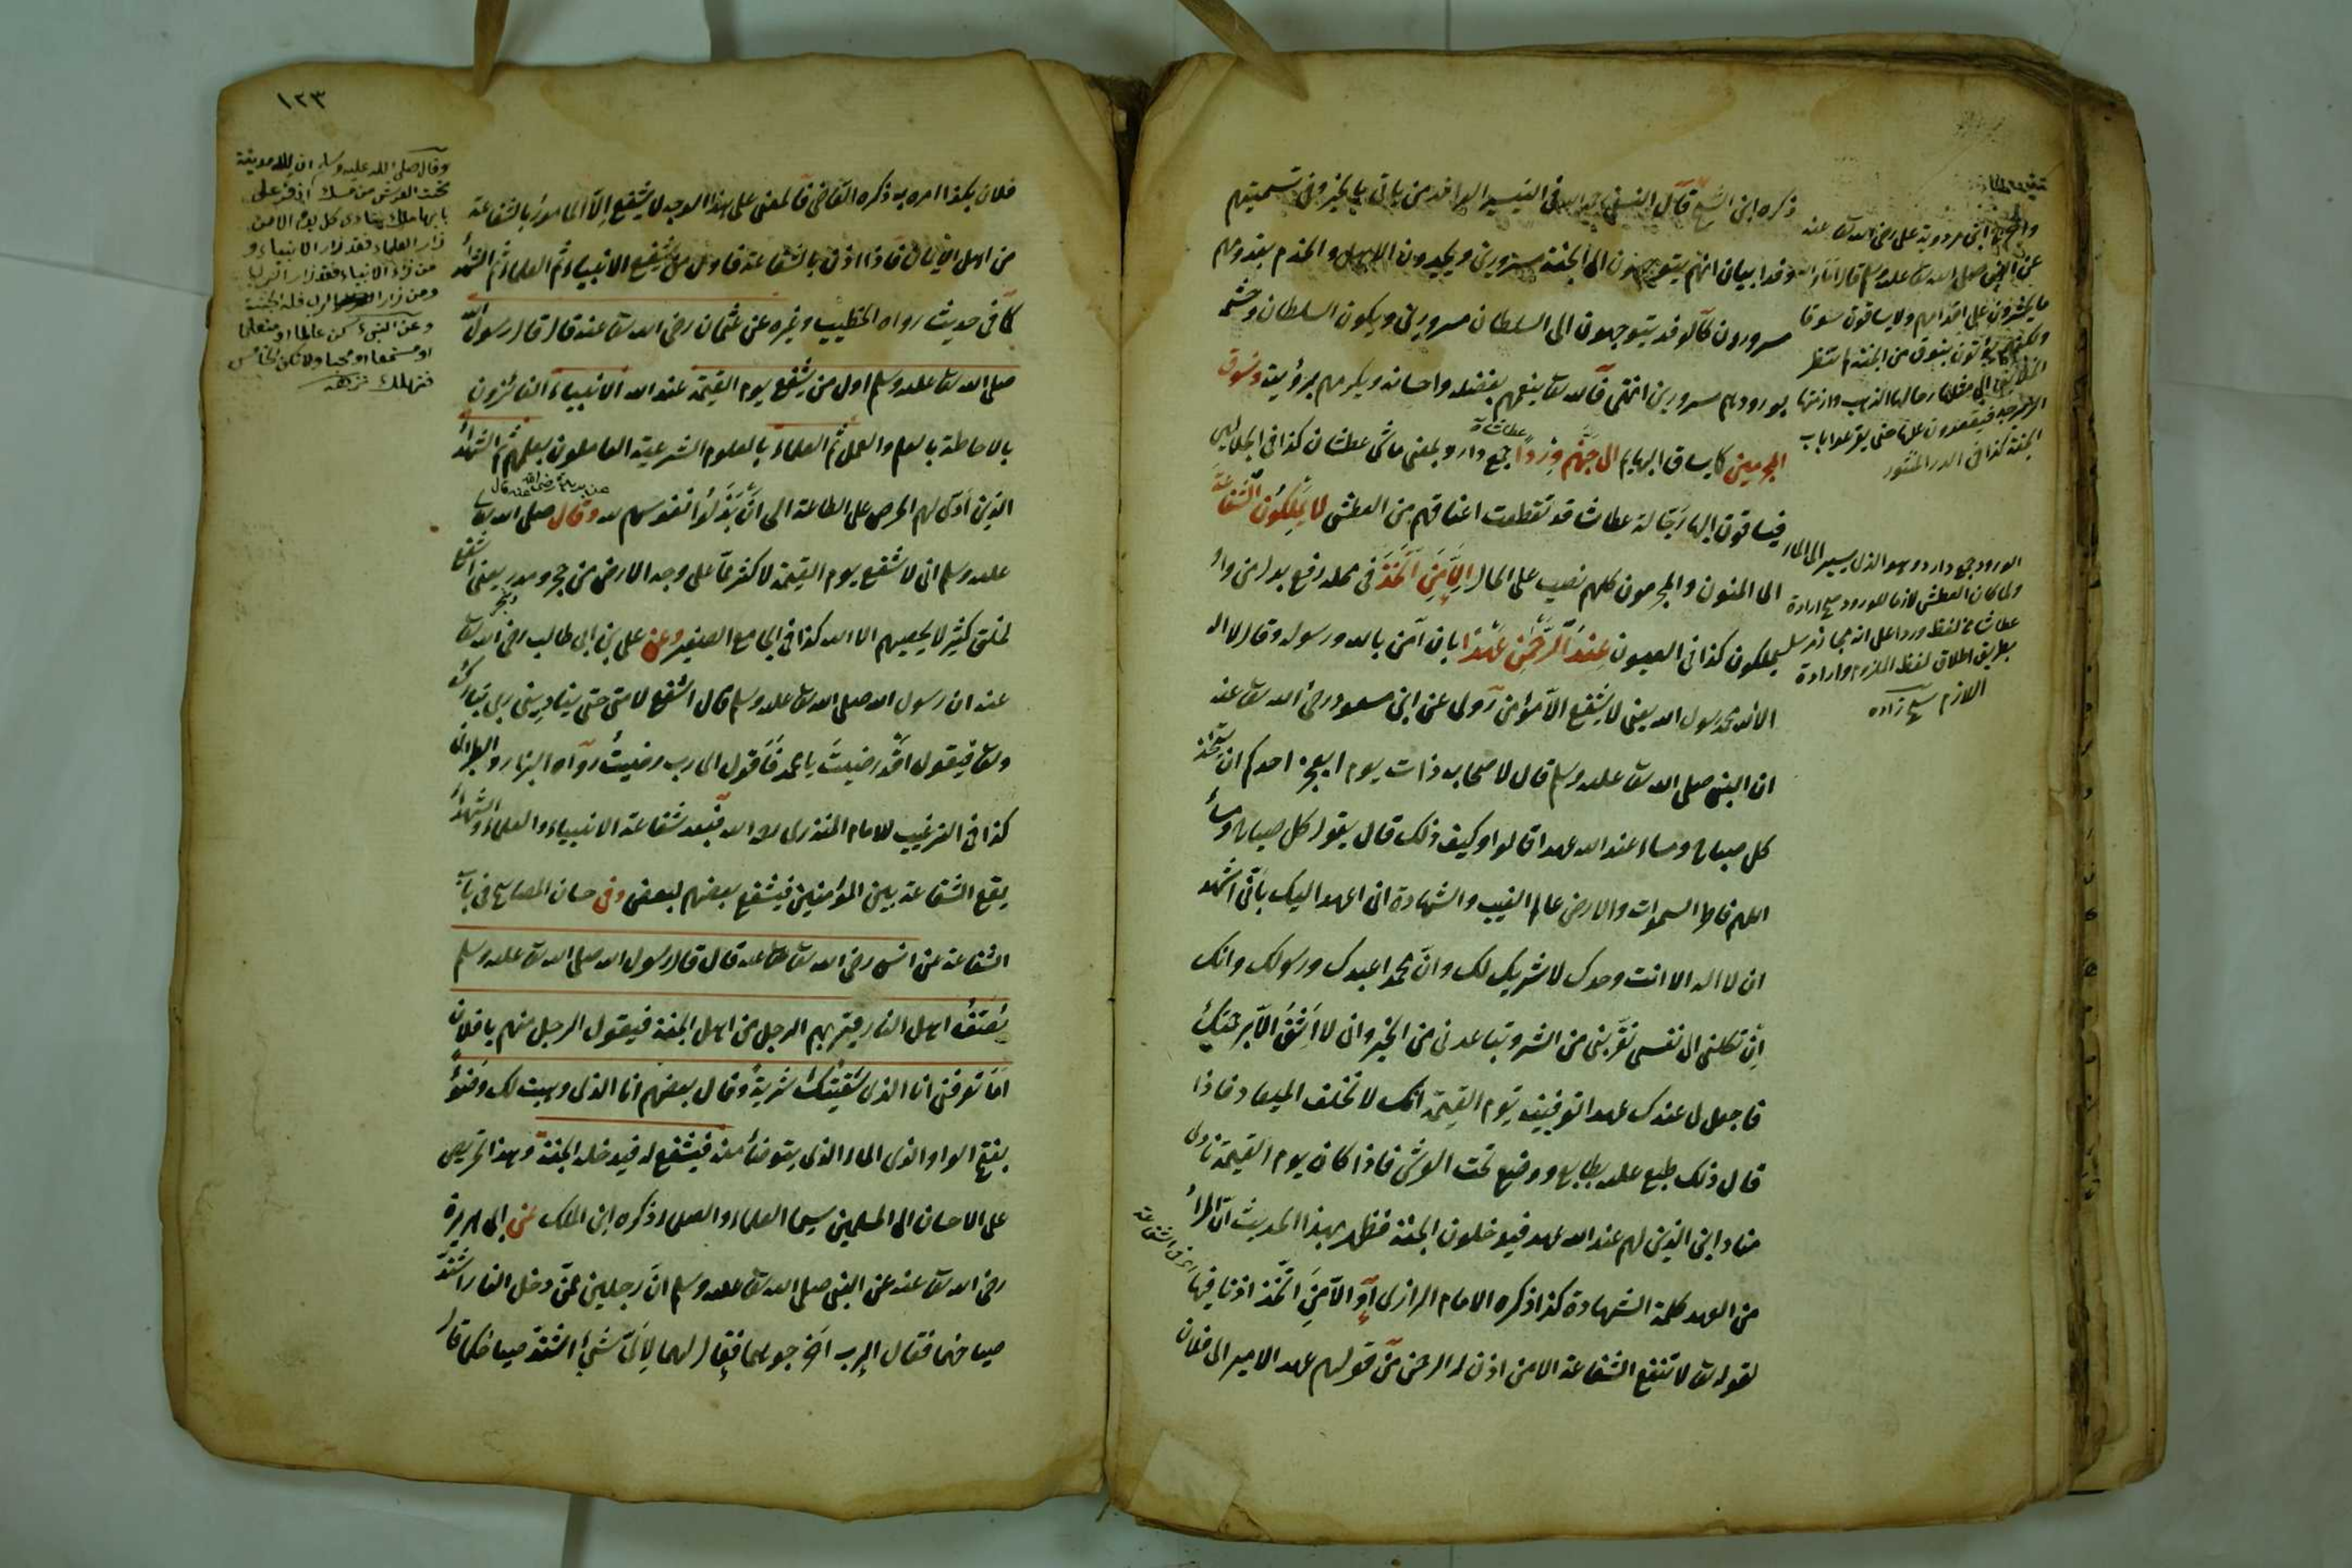 ذكره ابن الشيخ قال النسفي رحمه الله في التيسير الوافد من ياتي بالخير وفي تسميتهم
وفدا بيان انهم يتوجهون الى الجنة مسرورين ويجدون الاهل والخدم بقدومهم
مسرورون كالوفد يتوجهون الى السلطان مسرورين ويكون السلطان وحشمه
بورودهم مسرورين انتهى فالله تعا ينعمهم بفضله واحسانه ويكرمهم برؤيته ونسوق
المجرمين كما يساق البهايم الى جهنم وردا جمع وارد بمعنى ماشى عطشان كذا في الجلالين
فيساقون اليها رجالة عطاشا قد تقطعت اعناقهم من العطش لا يملكون الشفاعة
اى المتقون والمجرمون كلهم نصب على الحال الا من اتخذ في محله رفع بدل من واو
يملكون كذا في العيون عند الرحمن عهدا بان آمن بالله ورسوله وقال لا اله
الا الله محمد رسول الله يعنى لا يشفع الا مؤمن روى عن ابن مسعود رضى الله تعا عنه
ان النبى صلى الله تعا عليه وسلم قال لاصحابه ذات يوم ايعجز احدكم ان يتخذ
كل صباح ومساء عند الله عهدا قالوا وكيف ذلك قال يقول كل صباح ومساء
اللهم فاطر السموات والارض عالم الغيب والشهادة انى اعهد اليك بأنى اشهد
ان لا اله الا انت وحدك لا شريك لك وان محمدا عبدك ورسولك وانك
ان تكلنى الى نفسى تقربنى من الشر وتباعدنى من الخير وانى لا اثق الا برحمتك
فاجعل لى عندك عهدا توفينيه يوم القيمة انك لا تخلف الميعاد فاذا
قال ذلك طبع عليه بطابع ووضع تحت العرش فاذا كان يوم القيمة نادى
مناد اين الذين لهم عند الله عهد فيدخلون الجنة فظهر بهذا الحديث ان المراد
من العهد كلمة الشهادة كذا ذكره الامام الرازى او الا من اتخذ اذنا فيها
اى فى الشفاعة
لقوله تعا لا تنفع الشفاعة الا من اذن له الرحمن من قولهم عهد الامير الى فلان
عن النبى صلى الله تعا عليه وسلم قال اما والله
ما يحشرون على اقدامهم ولا يساقون سوقا
ولكنهم يؤتون بنوق من الجنة لم تنظر
الخلائق الى مثلها رحالها الذهب وازمتها
الزبرجد فيقعدون عليها حتى يقرعوا باب
الجنة كذا في الدر المنثور
الورود جمع وارد وهو الذى يسير الى الماء
ولما كان العطش لازما للورود صح ارادة
عطاشا من لفظ وردا على انه مجاز مرسل
بطريق اطلاق لفظ الملزوم وارادة
اللازم شيخ زاده
١٢٣
فلان بكذا امره به ذكره القاضى فالمعنى على هذا الوجه لا يشفع الا المأمور بالشفاعة
من اهل الايمان فاذا اذن بالشفاعة فاول من يشفع الانبياء ثم العلماء ثم الشهداء
كما في حديث رواه الخطيب وغيره عن عثمان رضى الله تعا عنه قال قال رسول الله
صلى الله تعا عليه وسلم اول من يشفع يوم القيمة عند الله الانبياء الفائزون
بالاحاطة بالعلم والعمل ثم العلماء بالعلوم الشرعية العاملون بعلمهم ثم الشهداء
الذين ادى لهم الحرص على الطاعة الى ان بذلوا انفسهم لله وقال صلى الله تعا
عليه وسلم انى لاشفع يوم القيمة لاكثر مما على وجه الارض من حجر ومدر يعنى اشفع
لخلق كثير لا يحصيهم الا الله كذا في الجامع الصغير وعن على بن ابى طالب رضى الله تعا
عنه ان رسول الله صلى الله تعا عليه وسلم قال اشفع لامتى حتى ينادينى ربى تبارك
وتعا فيقول اقد رضيت يا محمد فاقول اى رب رضيت رواه البزار والطبرانى
كذا في الترغيب للامام المنذرى رحمه الله فبعد شفاعة الانبياء والعلماء والشهداء
يقع الشفاعة بين المؤمنين فيشفع بعضهم لبعض وفى حسان المصابيح في باب
الشفاعة عن انس رضى الله تعا عنه قال قال رسول الله صلى الله تعا عليه وسلم
يصف اهل النار فيمر بهم الرجل من اهل الجنة فيقول الرجل منهم يا فلان
اما تعرفنى انا الذى سقيتك شربة وقال بعضهم انا الذى وهبت لك وضوء
بفتح الواو اى الماء الذى يتوضأ منه فيشفع له فيدخله الجنة وهذا تحريض
على الاحسان الى المسلمين سيما العلماء والصلحاء ذكره ابن الملك عن ابى هريرة
رضى الله تعا عنه عن النبى صلى الله تعا عليه وسلم ان رجلين ممن دخل النار اشتد
صياحهما فقال الرب اخرجوهما فقال لهما لاى شئ اشتد صياحكما قالا
وقال صلى الله عليه وسلم ان لله مدينة
تحت العرش من مسك اذفر على
بابها ملك ينادى كل يوم الا من
زار العلماء فقد زار الانبياء و
من زار الانبياء فقد زار الرب
ومن زار الرب فله الجنة
وعن النبى كن عالما او متعلما
او مستمعا او محبا ولا تكن الخامس
فتهلك